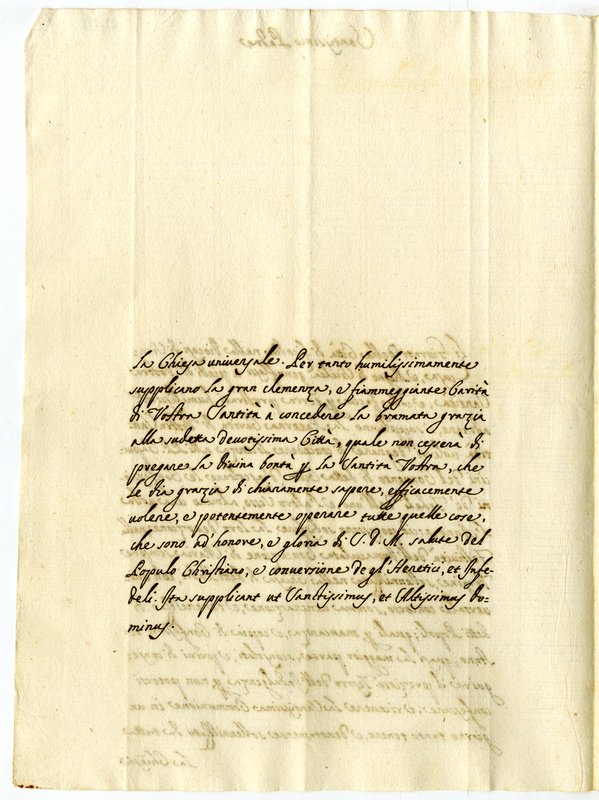 la Chiesa universale. Per tanto humilissimamente
supplicano la gran clemenza, e fiammeggiante Carità
di Vostra Santità a concedere la bramata grazia
alla sudetta devotissima Città, quale non cesserà di
pregare la divina bontà p la Santità Vostra, che
le dia grazia di chiaramente sapere, efficacemente
volere, e potentemente operare tutte quelle cose,
che sono ad honore, e gloria di S. D. M. salute del
Popolo Christiano, e conversione degl'Heretici, et Infe-
deli. Ita supplicant ut Sanctissimus, et Altissimus Do-
minus.